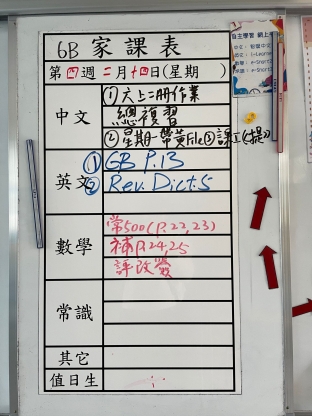 6B 家課表
第四週二月十四日(星期 )
中文
①六上二冊作業
總複習
②星期一帶黃File③課工(提)
英文
①GB P.13
②Rev. Dict.5
數學
常500(P.22,23)
補P.24,25
評改簽
常識
其它
值日生
自主學習 網上